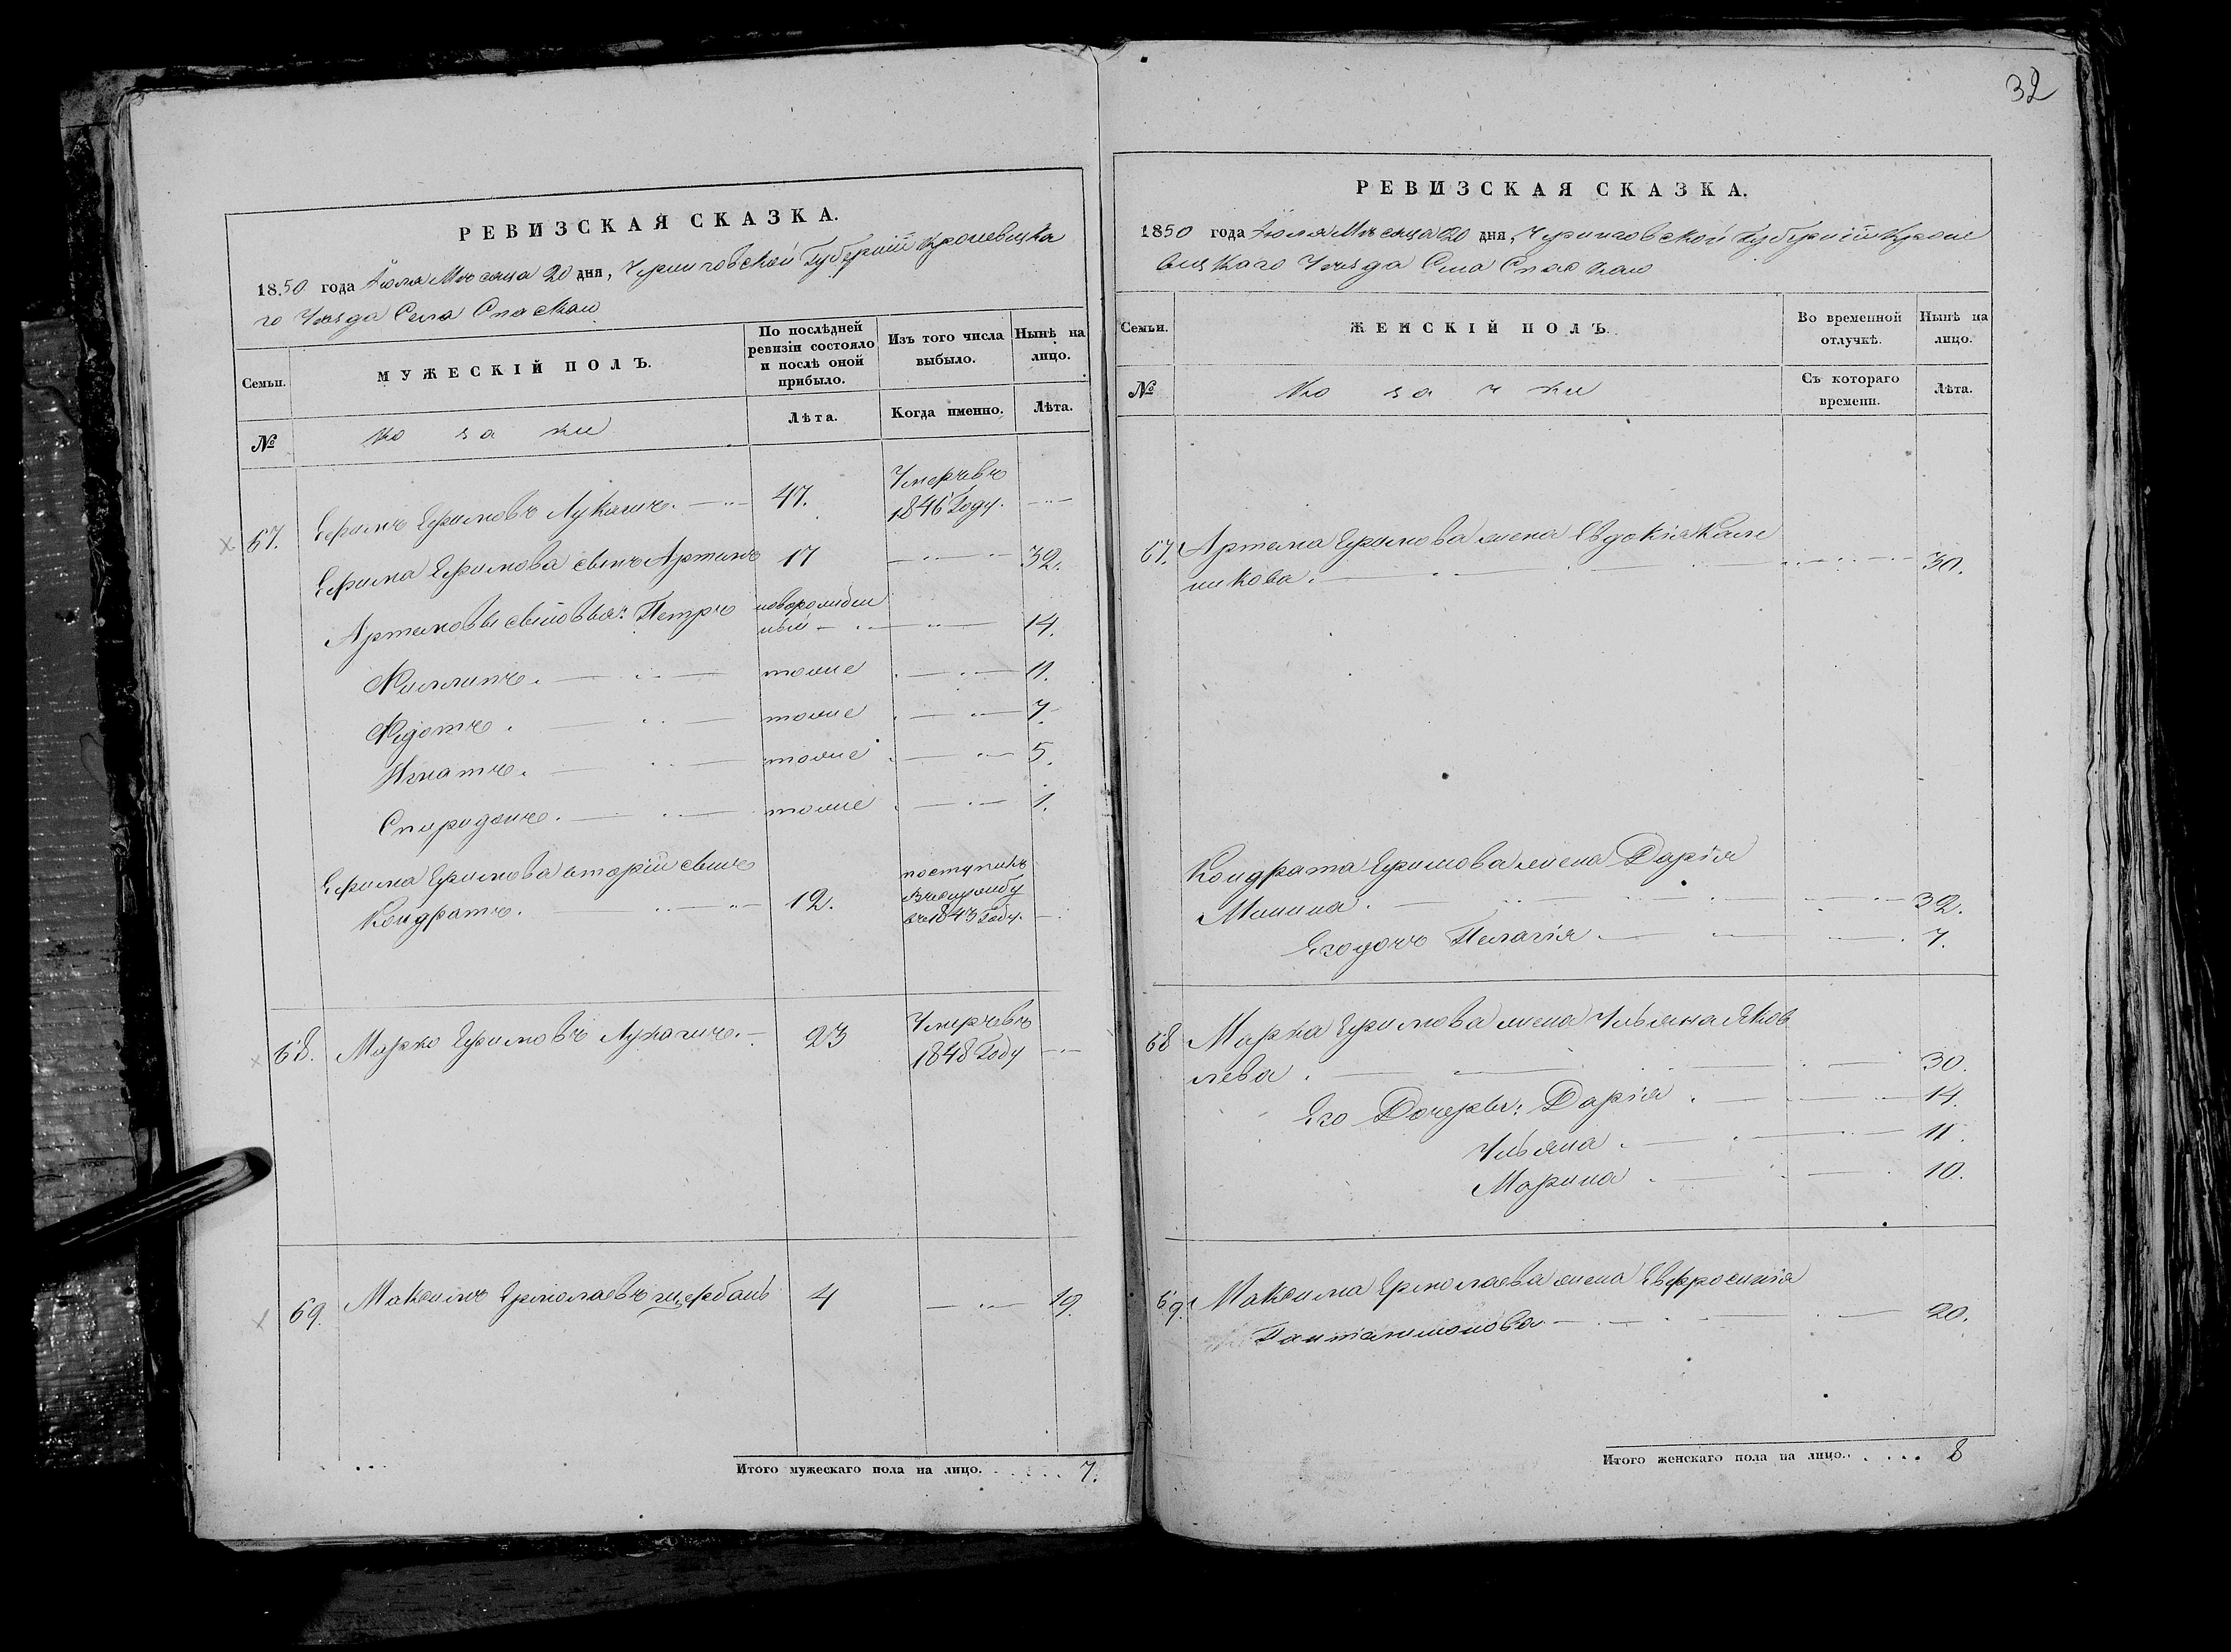 РЕВИЗСКАЯ СКАЗКА.
1850 года Июля Мѣсяца 20 дня, Черниговской Губерніи Кролевецка
го Уѣзда Села Спаскаго
Семьи.
МУЖЕСКІЙ ПОЛЪ.
По послѣдней ревизіи состояло и послѣ оной прибыло.
Изъ того числа выбыло.
Нынѣ на лицо.
№
Козаки
Лѣта.
Когда именно.
Лѣта.
67. Ефимъ Ефимовъ Лукашъ. 47. Умеръ въ
1846 Году.
Ефима Ефимова сынъ Артемъ 17 32.
Артемовы сыновья: Петръ новорожден
ный 14.
Филлипъ. тоже 11.
Федотъ. тоже 7.
Игнатъ. тоже 5.
Спиридонъ. тоже 1.
Ефима Ефимова вторій сынъ поступилъ
Кондратъ. 12. въ службу
въ 1843 Году.
68. Марко Ефимовъ Лукашъ. 23 Умеръ въ
1848 Году
69. Максимъ Ермолаевъ Щербань 4 19.
Итого мужескаго пола на лицо. 7.
32
РЕВИЗСКАЯ СКАЗКА.
1850 года Июля Мѣсяца 20 дня, Черниговской Губерніи Кроле
вецкаго Уѣзда Села Спаскаго
Семьи.
ЖЕНСКІЙ ПОЛЪ.
Во временной отлучкѣ.
Нынѣ на лицо.
№
Козачки
Съ котораго времени.
Лѣта.
67. Артема Ефимова жена Евдокія Калж
никова. 30.
Кондрата Ефимова жена Дарія
Минина. 32.
Его дочь Пелагія 7.
68 Марка Ефимова жена Ульяна Яков
лева. 30.
Его Дочери: Дарія. 14.
Ульяна. 11.
Марина. 10.
69. Максима Ермолаева жена Евфросинія
Пантелимонова. 20.
Итого женскаго пола на лицо. 8